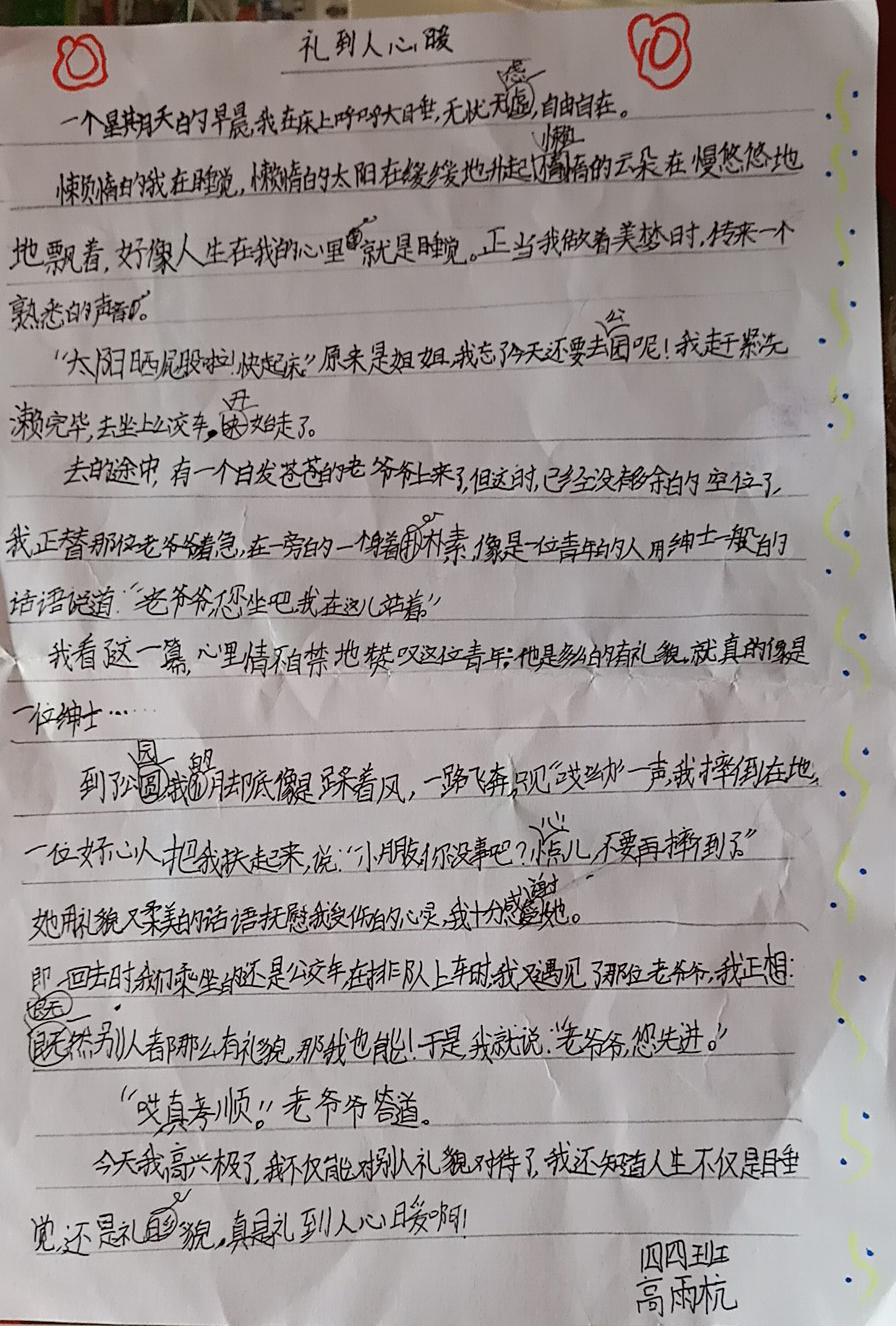 礼到人心暖
一个星期天的早晨,我在床上呼呼大睡,无忧无虑,自由自在。
懒惰的我在睡觉,懒惰的太阳在缓缓地升起,懒惰的云朵在慢悠悠地
地飘着,好像人生在我的心里就是睡觉。正当我做着美梦时,传来一个
熟悉的声音。
“太阳晒屁股啦!快起床。”原来是姐姐,我忘了今天还要去公园呢!我赶紧洗
漱完毕,去坐上公交车,开始走了。
去的途中,有一个白发苍苍的老爷爷上来了,但这时,已经没有多余的空位了,
我正替那位老爷爷着急,在一旁的一个身着朴素,像是一位青年的人用绅士一般的
话语说道:“老爷爷,您坐吧,我在这儿站着。”
我看到这一幕,心里情不自禁地赞叹这位青年:他是多么的有礼貌。就真的像是
一位绅士……
到了公园,我的脚底像是踩着风,一路飞奔,只见“哎呦”一声,我摔倒在地,
一位好心人把我扶起来,说:“小朋友,你没事吧?小心点儿,不要再摔倒了。”
她用礼貌又柔美的话语抚慰我受伤的心灵,我十分感谢她。
即回去时,我们乘坐的还是公交车,在排队上车时,我又遇见了那位老爷爷,我正想:
既然别人都那么有礼貌,那我也能!于是,我就说:“老爷爷,您先进。”
“哎,真孝顺!”老爷爷答道。
今天我高兴极了,我不仅能对别人礼貌对待了,我还知道人生不仅是睡
觉,还是礼貌,真是礼到人心暖啊!
四四班
高雨杭